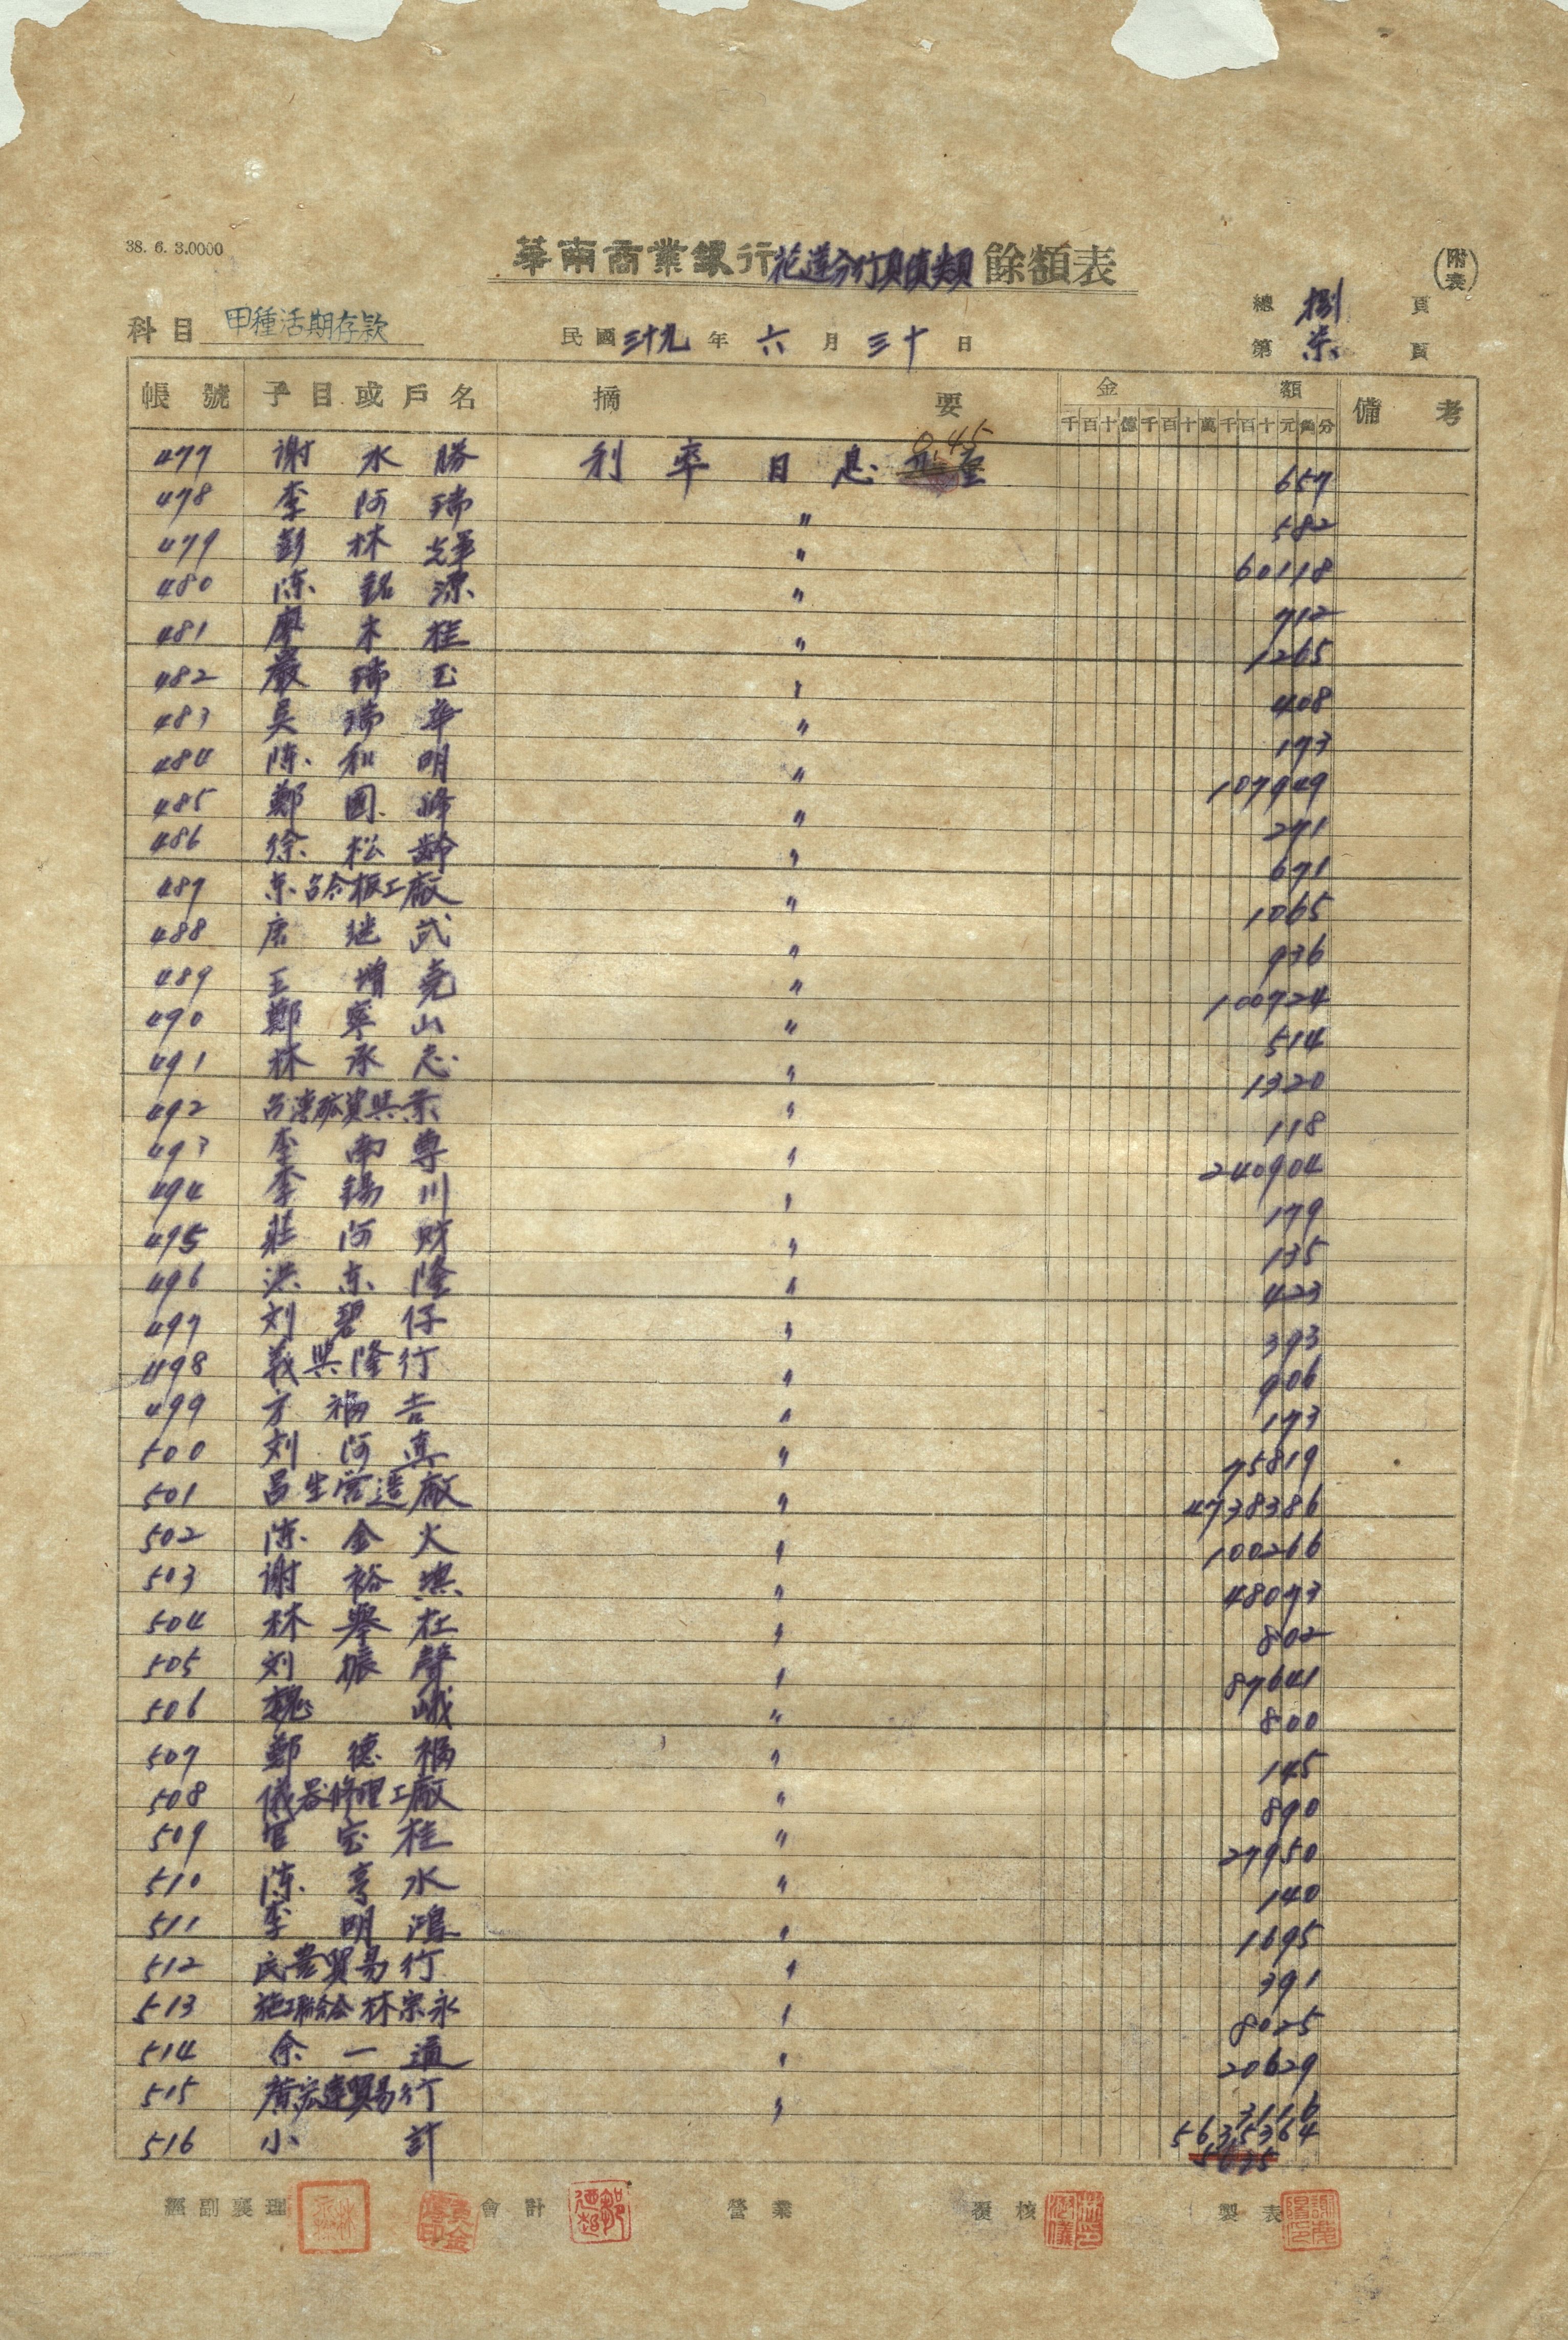 38. 6. 3.0000
華南商業銀行花蓮分行負債類餘額表
(附表)
總 捌 頁
科目 甲種活期存款
民國 三十九 年 六 月 三十 日
第 柒 頁
帳號 子目或戶名 摘要 金額 備考
千百十億千百十萬千百十元角分
477 謝水勝 利率日息 0.45 657
478 李阿瑞 〃 582
479 彭林輝 〃 60118
480 陳銘源 〃 712
481 廖木桂 〃 1265
482 嚴瑞玉 〃 408
483 吳瑞華 〃 173
484 陳和明 〃 107949
485 鄭國 〃 271
486 徐松齡 〃 671
487 東台合板工廠 〃 1065
488 唐継武 〃 936
489 王增堯 〃 100724
490 鄭寧山 〃 514
491 林承志 〃 1320
492 台湾砿資興業 〃 118
493 李南尊 〃 240904
494 李錫川 〃 179
495 莊阿財 〃 135
496 洪東隆 〃 423
497 刘碧仔 〃 393
498 義興隆行 〃 906
499 方福吉 〃 173
500 刘阿真 〃 75819
501 呂生営造廠 〃 4738386
502 陳金火 〃 100266
503 謝裕 〃 48073
504 林舉杜 〃 802
505 刘振聲 〃 87641
506 魏峨 〃 800
507 鄭德福 〃 145
508 儀器修理工廠 〃 890
509 官宝桂 〃 27950
510 陳亨水 〃 140
511 李明鴻 〃 1695
512 民豊貿易行 〃 391
513 林宗永 〃 8025
514 余一道 〃 20629
515 宏達貿易行 〃 3116
516 小計 5635364
經副襄理 會計 營業 覆核 製表